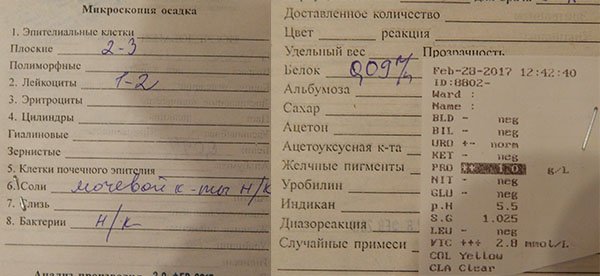 Микроскопия осадка
1. Эпителиальные клетки
Плоские 2-3
Полиморфные
2. Лейкоциты 1-2
3. Эритроциты
4. Цилиндры
Гиалиновые
Зернистые
5. Клетки почечного эпителия
6. Соли мочевой к-ты н/к
7. Слизь
8. Бактерии н/к
Анализ произведен
Доставленное количество
Цвет реакция
Удельный вес Прозрачность
Белок 0,09%
Альбумоза
Сахар
Ацетон
Ацетоуксусная к-та
Желчные пигменты
Уробилин
Индикан
Диазореакция
Случайные примеси
Feb-28-2017 12:42:40
ID:8802-
Ward :
Name :
BLD - neg
BIL - neg
URO +- norm
KET - neg
PRO 1.0 g/L
NIT - neg
GLU - neg
p.H 5.5
S.G 1.025
LEU - neg
VTC +++ 2.8 mmol/L
COL Yellow
CLA Clear